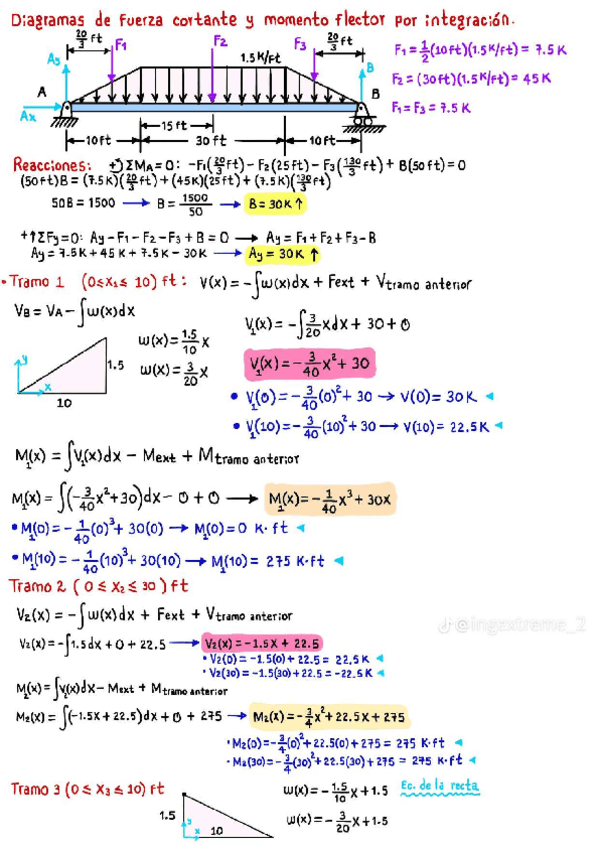 Diagramas de fuerza cortante y momento flector por integración.
20/3 ft
F1
F2
F3
20/3 ft
Ay
1.5K/Ft
B
A
B
Ax
15 ft
10ft
30 ft
10 ft
F1 = 1/2(10ft)(1.5K/ft) = 7.5 K
F2 = (30ft)(1.5K/ft) = 45 K
F1 = F3 = 7.5 K
Reacciones: +↺ ΣMA = 0: -F1(20/3 ft) - F2(25ft) - F3(130/3 ft) + B(50ft) = 0
(50ft)B = (7.5K)(20/3 ft) + (45K)(25ft) + (7.5K)(130/3 ft)
50B = 1500 → B = 1500/50 → B = 30K↑
+↑ΣFy=0: Ay - F1 - F2 - F3 + B = 0 → Ay = F1 + F2 + F3 - B
Ay = 7.5K + 45K + 7.5K - 30K → Ay = 30 K ↑
• Tramo 1 (0≤X1≤10) ft: V(x) = -∫w(x)dx + Fext + Vtramo anterior
VB = VA - ∫w(x)dx
V1(x) = -∫3/20 xdx + 30 + 0
w(x) = 1.5/10 x
w(x) = 3/20 x
y
x
1.5
10
V1(x) = -3/40 x² + 30
• V1(0) = -3/40 (0)² + 30 → V(0) = 30K
• V1(10) = -3/40 (10)² + 30 → V(10) = 22.5K
M1(x) = ∫V1(x)dx - Mext + Mtramo anterior
M1(x) = ∫(-3/40 x² + 30)dx - 0 + 0 → M1(x) = -1/40 x³ + 30x
• M1(0) = -1/40 (0)³ + 30(0) → M1(0) = 0 K·ft
• M1(10) = -1/40 (10)³ + 30(10) → M1(10) = 275 K·ft
Tramo 2 (0 ≤ X2 ≤ 30) ft
V2(x) = -∫w(x)dx + Fext + Vtramo anterior
V2(x) = -∫1.5dx + 0 + 22.5 → V2(x) = -1.5X + 22.5
• V2(0) = -1.5(0) + 22.5 = 22.5K
• V2(30) = -1.5(30) + 22.5 = -22.5K
M1(x) = ∫V1(x)dx - Mext + Mtramo anterior
M2(x) = ∫(-1.5x + 22.5)dx + 0 + 275 → M2(x) = -3/4 x² + 22.5x + 275
• M2(0) = -3/4 (0)² + 22.5(0) + 275 = 275 K·ft
• M2(30) = -3/4 (30)² + 22.5(30) + 275 = 275 K·ft
@ingextreme_2
Tramo 3 (0 ≤ X3 ≤ 10) ft
1.5
y
x
10
w(x) = -1.5/10 x + 1.5
Ec. de la recta
w(x) = -3/20 x + 1.5